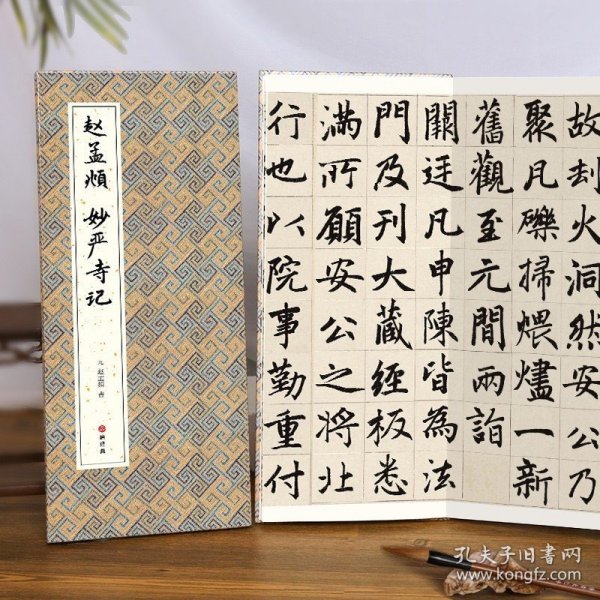 赵孟頫 妙严寺记
元 赵孟頫 书
故刦火洞然安公乃
聚凡礫掃煨燼一新
舊觀至元間兩詣
闕廷凡申陳皆為法
門及刊大藏經板悉
滿所願安公之將北
行也以院事勤重付
孔夫子旧书网
www.kongfz.com